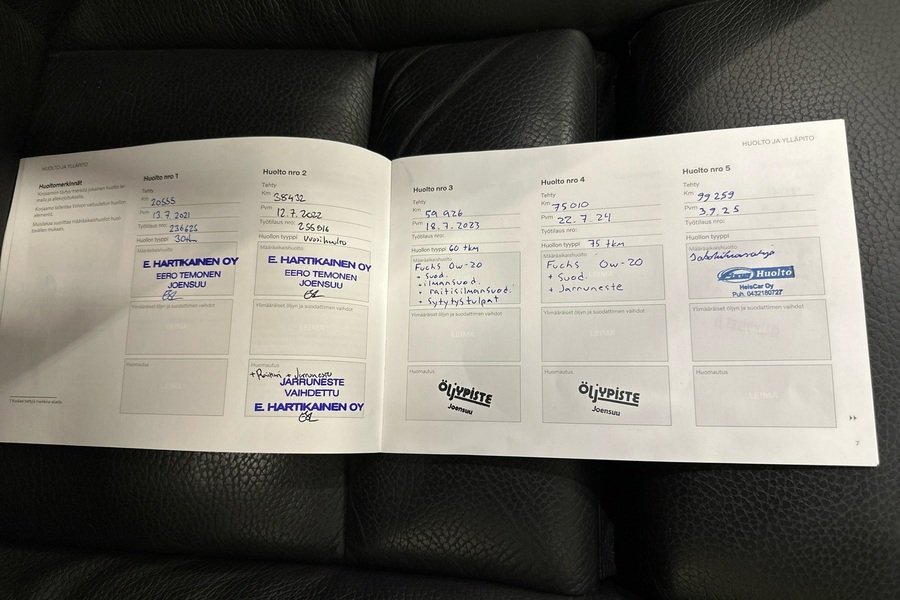 HUOLTO JA YLLÄPITO
Huoltomerkinnät
Huolto nro 1
Tehty
Km 20555
Pvm 13.7.2021
Työtilaus nro: 236625
Huollon tyyppi
Määräaikaishuolto
E. HARTIKAINEN OY
EERO TEMONEN
JOENSUU
Ylimääräiset öljyn ja suodattimen vaihdot
LEIMA
Huomautus
LEIMA
Huolto nro 2
Tehty
Km 38432
Pvm 12.7.2022
Työtilaus nro:
Huollon tyyppi Vuosihuolto
Määräaikaishuolto
E. HARTIKAINEN OY
EERO TEMONEN
JOENSUU
Ylimääräiset öljyn ja suodattimen vaihdot
Huomautus
JARRUNESTE
VAIHDETTU
E. HARTIKAINEN OY
Huolto nro 3
Tehty
Km 59 926
Pvm 18.7.2023
Työtilaus nro:
Huollon tyyppi 60 tkm
Määräaikaishuolto
Fuchs 0w-20
+ Suod.
+ ilmansuod.
+ raitisilmansuod.
+ Sytytystulpat
Ylimääräiset öljyn ja suodattimen vaihdot
LEIMA
Huomautus
ÖLJYPISTE
Joensuu
Huolto nro 4
Tehty
Km 75010
Pvm 22.7.24
Työtilaus nro:
Huollon tyyppi 75 tkm
Määräaikaishuolto
Fuchs 0w-20
+ Suod
+ Jarruneste
Ylimääräiset öljyn ja suodattimen vaihdot
LEIMA
Huomautus
ÖLJYPISTE
Joensuu
HUOLTO JA YLLÄPITO
Huolto nro 5
Tehty
Km 99 259
Pvm 3.9.25
Työtilaus nro:
Huollon tyyppi
Määräaikaishuolto
Huolto
HeisCar Oy
Puh. 0432180727
Ylimääräiset öljyn ja suodattimen vaihdot
LEIMA
Huomautus
LEIMA
7